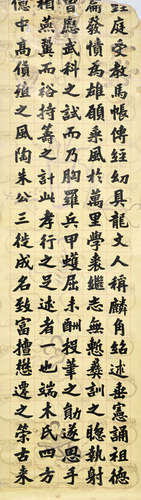 鯉庭受教馬帳傳經幼具龍文人稱麟角紹述垂憲誦祖德
發憤為雄願乘風於萬里學裘繼志無慙彝訓之聰執射
應武科之試而乃胸羅兵甲蠖屈未酬投筆之勛遂思手
燕翼而裕持籌之計此孝行之足述者一也端木氏四方
億中高貨殖之風陶朱公三徙成名致富擅懋遷之榮古來